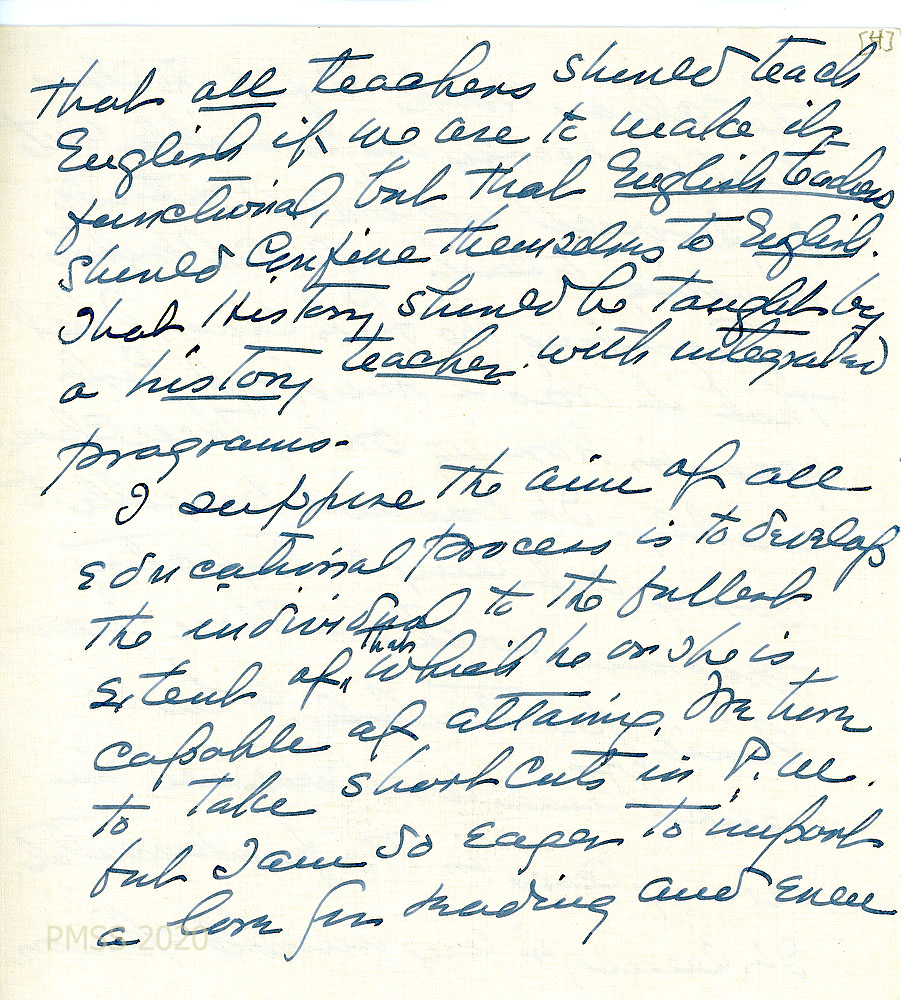 [4]
that all teachers should teach
English if we are to make it
functional, but that English teachers
should confine themselves to English.
That History should be taught by
a history teacher with integrated
programs.
I suppose the aim of all
educational process is to develop
the individual to the fullest
extent of that which he or she is
capable of attaining. We have
to take short cuts in P.M.
but I am so eager to impart
a love for reading and even
PMSS 2020